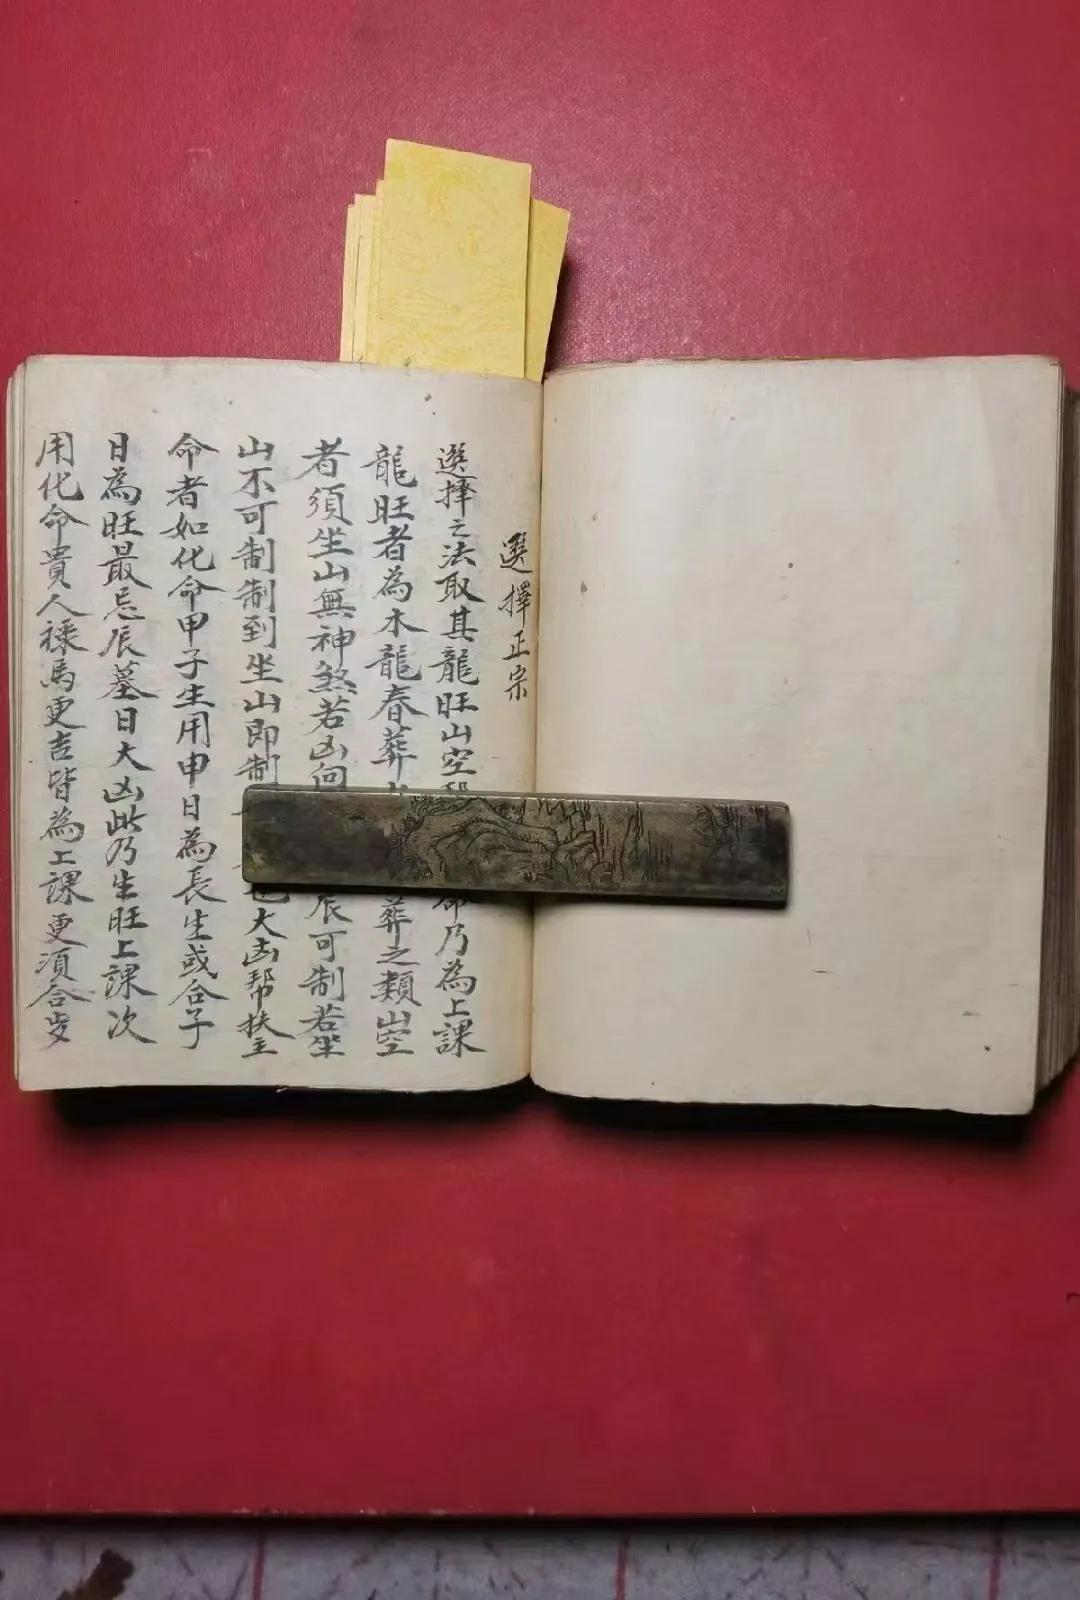 選擇正宗
選擇之法取其龍旺山空 乃為上課
龍旺者為木龍春葬 葬之類山空
者須坐山無神煞若凶向 辰可制若坐
山不可制制到坐山即制 大凶幫扶主
命者如化命甲子生用申日為長生或合子
日為旺最忌辰墓日大凶此乃生旺上課次
用化命貴人祿馬更吉皆為上課更須合歩